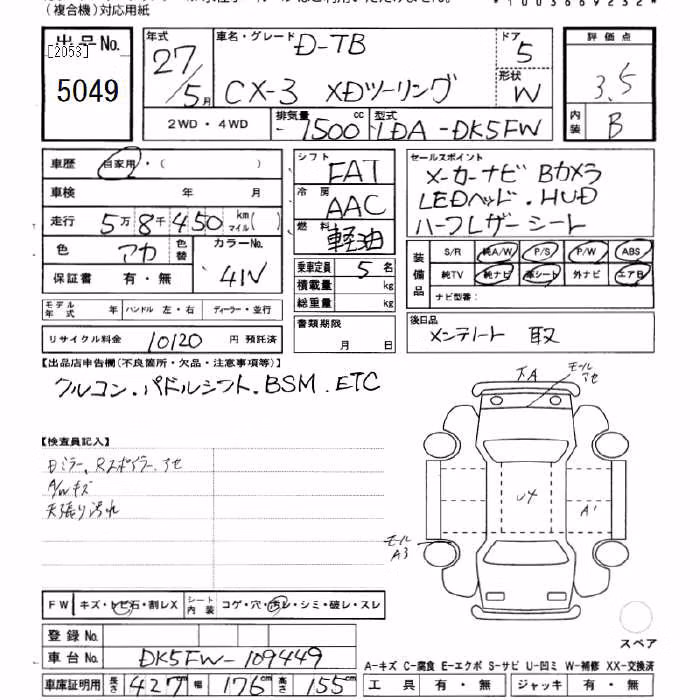 (複合機)対応用紙
*1003669232*
出品No.
[2053]
5049
年式
27/5月
車名・グレード
D-TB
CX-3 XDツーリング
ドア
5
形状
W
評価点
3.5
内装
B
2WD・4WD
排気量
1500cc
型式
LDA-DK5FW
車歴 自家用・( )
車検 年 月
走行 5万8千450 km マイル( )
色 アカ 色替 カラーNo. 41V
保証書 有・無
モデル年式 年 ハンドル 左・右 ディーラー・並行
リサイクル料金 10120 円 預託済
シフト FAT
冷房 AAC
燃料 軽油
乗車定員 5名
積載量 kg
総重量 kg
書類期限
月 日
セールスポイント
メーカーナビ Bカメラ
LEDヘッド.HUD
ハーフレザーシート
装備品
S/R 純A/W P/S P/W ABS
純TV 純ナビ 革シート 外ナビ エアB
ナビ型番:
後日品
メンテノート 取
【出品店申告欄(不良箇所・欠品・注意事項等)】
クルコン.パドルシフト.BSM.ETC
【検査員記入】
Dミラー、Rスポイラーアセ
A/Wキズ
天張り汚れ
モールアセ
下A
U4
A1
モールA3
FW キズ・トビ石・割レX
シート内装 コゲ・穴・汚レ・シミ・破レ・スレ
登録No.
車台No. DK5FW-109449
車庫証明用 長さ 427cm 幅 176cm 高さ 155cm
スペア
A-キズ C-腐食 E-エクボ S-サビ U-凹ミ W-補修 XX-交換済
工具 有・無 ジャッキ 有・無